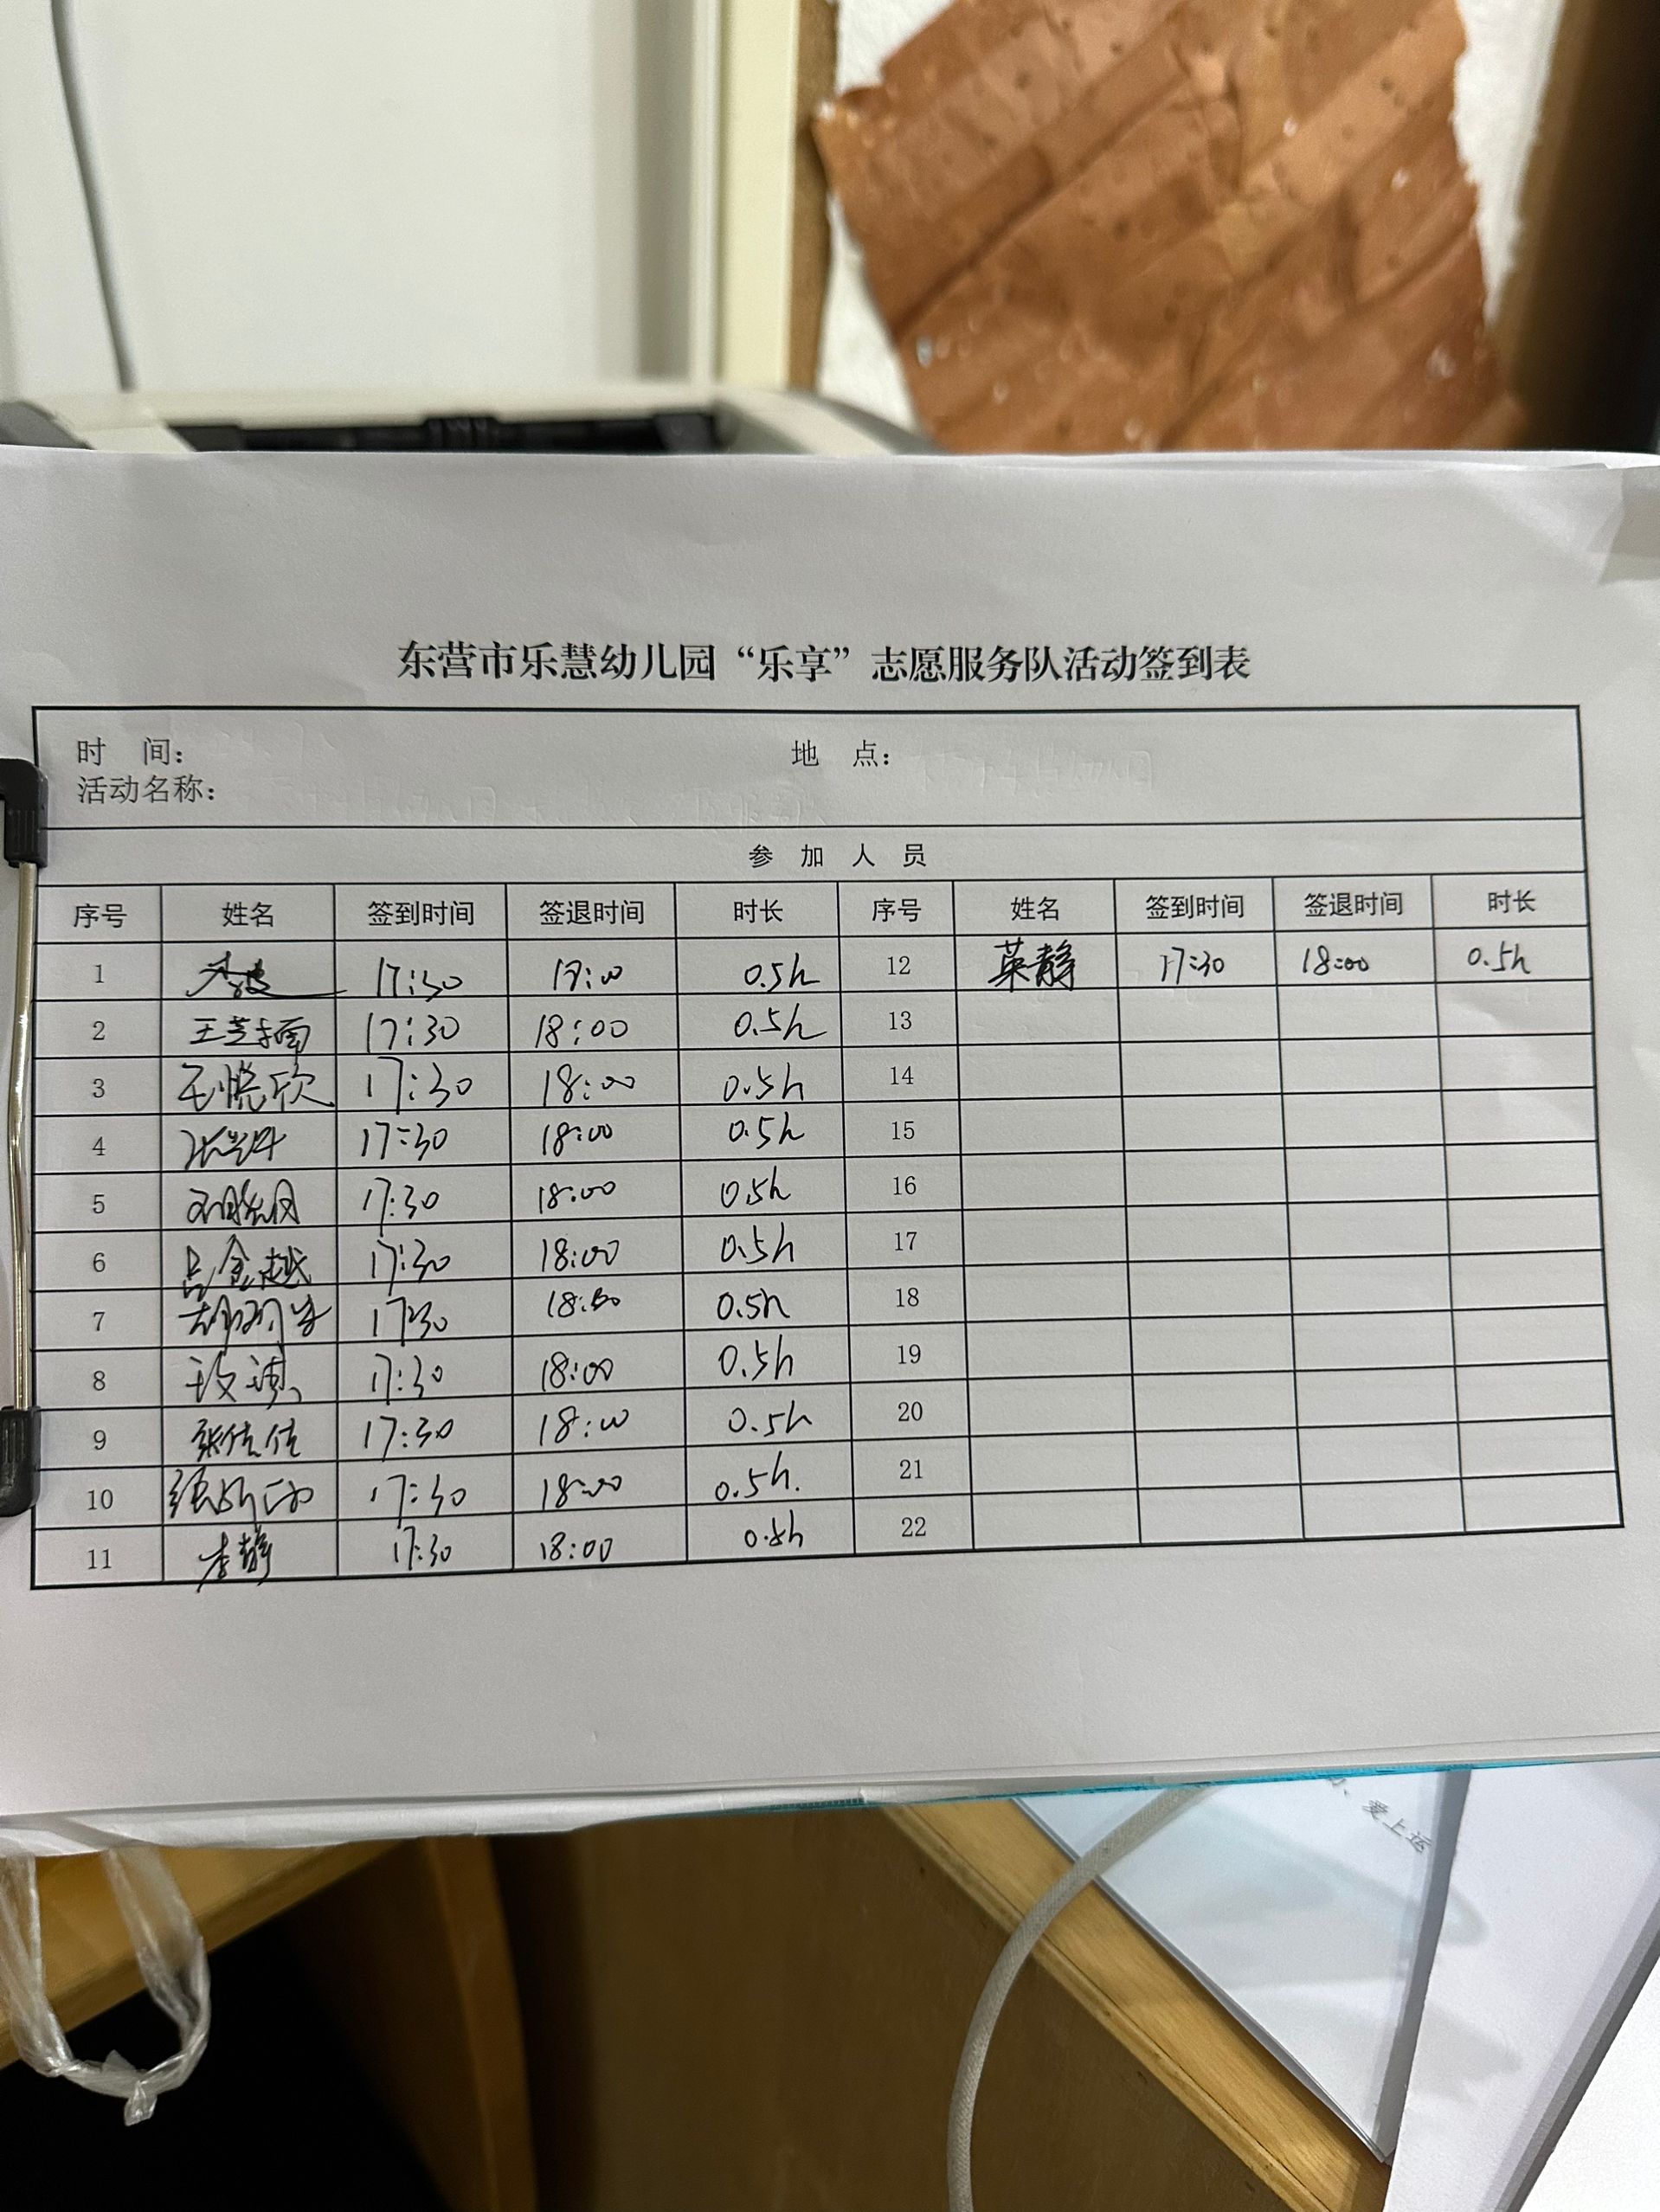 东营市乐慧幼儿园“乐享”志愿服务队活动签到表
时 间： 地 点：
活动名称：
参 加 人 员
序号 姓名 签到时间 签退时间 时长 序号 姓名 签到时间 签退时间 时长
1 17:30 0.5h 12 英静 17:30 18:00 0.5h
2 17:30 18:00 0.5h 13
3 17:30 18:00 0.5h 14
4 17:30 18:00 0.5h 15
5 17:30 18:00 0.5h 16
6 吕金越 17:30 18:00 0.5h 17
7 17:30 18:00 0.5h 18
8 17:30 18:00 0.5h 19
9 张佳佳 17:30 18:00 0.5h 20
10 17:30 18:00 0.5h. 21
11 李静 17:30 18:00 0.5h 22
、爱上运